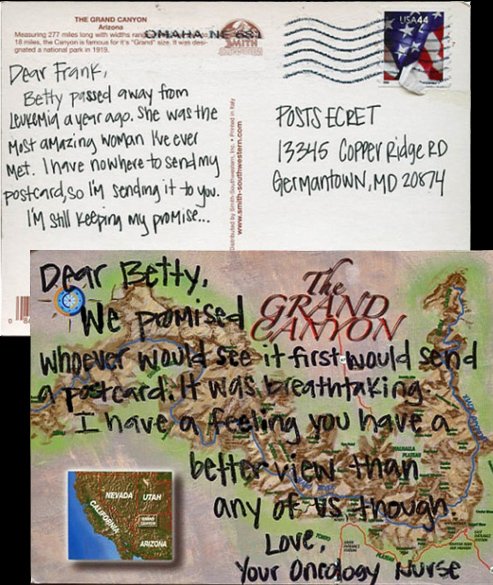 THE GRAND CANYON
Arizona
Measuring 277 miles long with widths
18 miles, the Canyon is famous for it's "Grand" size. It was des-
ignated a national park in 1919.
OMAHA NE 681
SMITH
USA44
Dear Frank,
Betty passed away from
Leukemia a year ago. She was the
most amazing woman I've ever
met. I have nowhere to send my
postcard, so I'm sending it to you.
I'm still keeping my promise...
Distributed by Smith-Southwestern, Inc. • Printed in Italy
www.smith-southwestern.com
POSTSECRET
13345 Copper Ridge RD
Germantown, MD 20874
The
GRAND
CANYON
Dear Betty,
We promised
whoever would see it first would send
a postcard. It was breathtaking
I have a feeling you have a
better view than
any of us though.
Love,
Your Oncology Nurse
WALHALLA
PLATEAU
NEVADA
UTAH
CALIFORNIA
GRAND
CANYON
ARIZONA